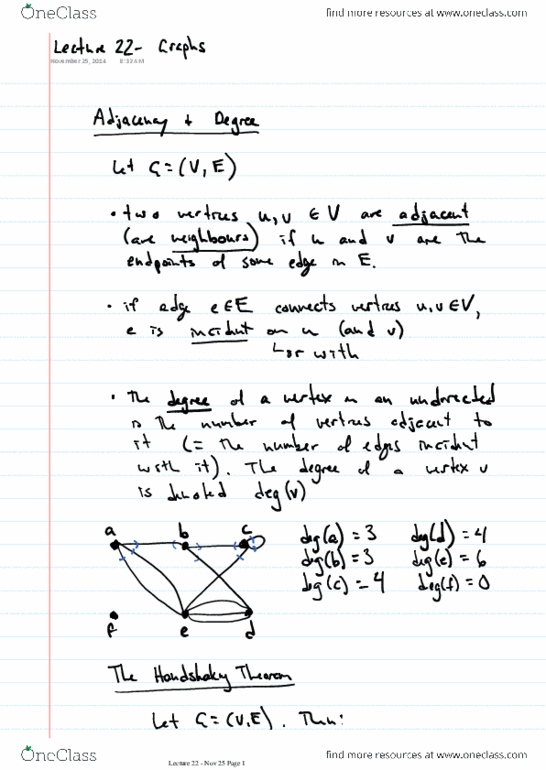 OneClass find more resources at www.oneclass.com
Lecture 22- Graphs
November 25, 2014 8:33 AM
Adjacency + Degree
Let G = (V, E)
• two vertices u, v ∈ V are adjacent
(are neighbours) if u and v are the
endpoints of some edge in E.
• if edge e ∈ E connects vertices u, v ∈ V,
e is incident on u (and v)
↳ or with
• The degree of a vertex in an undirected
is the number of vertices adjacent to
it (= the number of edges incident
with it). The degree of a vertex v
is denoted deg(v)
a b c
deg(a) = 3 deg(d) = 4
deg(b) = 3 deg(e) = 6
deg(c) = 4 deg(f) = 0
f e d
The Handshaking Theorem
Let G = (V, E). Then:
Lecture 22 - Nov 25 Page 1
OneClass find more resources at www.oneclass.com